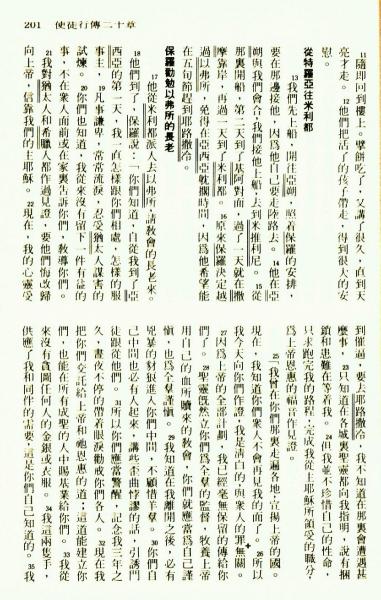 201 使徒行傳二十章
11 隨即回到樓上。擘餅吃了，又講了很久，直到天
亮才走。 12 他們把活了的孩子帶走，得到很大的安
慰。
從特羅亞往米利都
13 我們先上船，開往亞朔，照着保羅的安排，
要在那邊接他，因爲他自己要走陸路去。 14 他在亞
朔與我們會合，我們接他上船，去到米推利尼。 15 從
那裏開船，第二天到了基阿對面，過了一天就在撒
摩靠岸，再過一天到了米利都。 16 原來保羅決定越
過以弗所，免得在亞西亞就擱時間，因爲他希望能
在五旬節趕到耶路撒冷。
保羅勸勉以弗所的長老
17 他從米利都派人去以弗所，請教會的長老來。
18 他們到了，保羅說：「你們知道，自從我到了亞
西亞的第一天，我一直怎樣跟你們相處，怎樣的服
事主， 19 凡事謙卑，常常流淚，忍受猶太人謀害的
試煉。 20 你們也知道，我從來沒有留下一件有益的
事，不在衆人面前或在家裏告訴你們，教導你們。
21 我對猶太人和希臘人都作過見證，要他們悔改歸
向上帝，信靠我們的主耶穌。 22 現在，我的心靈受
到催逼，要去耶路撒冷，我不知道在那裏會遭遇甚
麼事， 23 只知道在各城裏聖靈都向我指明，說有捆
鎖和患難在等着我。 24 但我並不珍惜自己的性命，
只求跑完我的路程，完成我從主耶穌所領受的職分，
爲上帝恩惠的福音作見證。
25 「我曾在你們那裏走遍各地，宣揚上帝的國。
現在，我知道你們衆人不會再見我的面了。 26 所以
我今天向你們作證，我是清白的，與衆人的罪無關。
27 因爲上帝的全部計劃，我已經毫無保留的傳給你
們了。 28 聖靈既然立你們爲全羣的監督，牧養上帝
用自己的血所贖來的教會，你們就應當爲自己謹
慎，也爲全羣謹慎。 29 我知道在我離開之後，必有
兇暴的豺狼進入你們中間，不顧惜羊羣。 30 你們自
己中間也必有人起來，講些歪曲悖謬的話，引誘門
徒跟從他們。 31 所以你們應當警醒，記念我三年之
久，晝夜不停的帶着眼淚勸戒你們各人。 32 現在我
把你們交託給上帝和他恩惠的道；這道能建立你
們，也能在所有成聖的人中賜基業給你們。 33 我從
來沒有貪圖任何人的金銀或衣服。 34 我這兩隻手，
供應了我和同伴的需要，這是你們自己知道的。 35 我